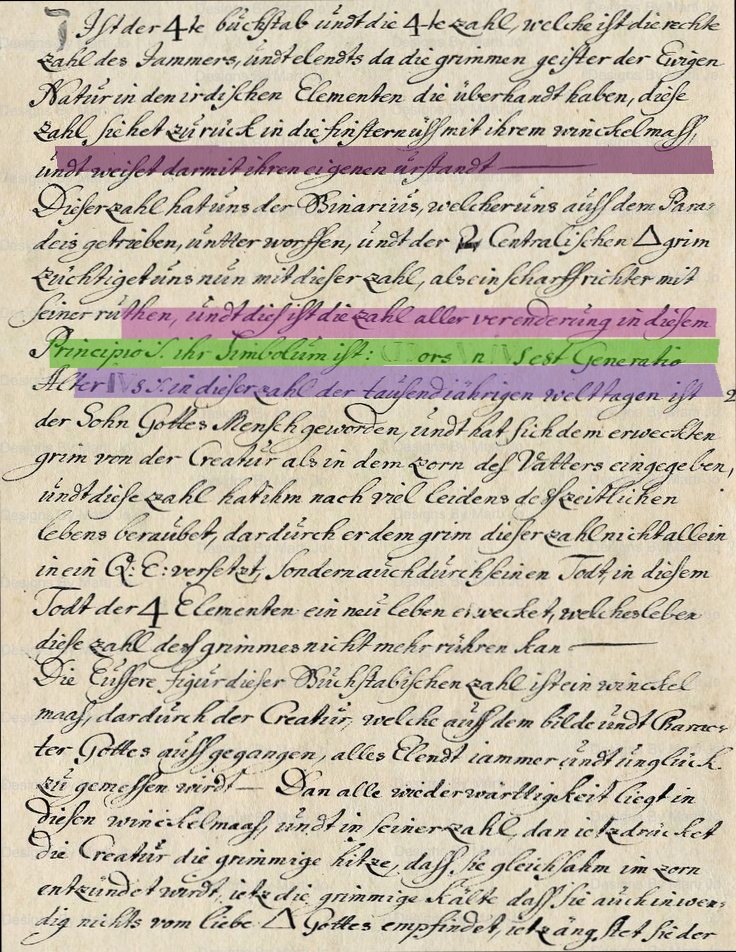 Ist der 4te buchstab undt die 4te zahl, welche ist die rechte
zahl des Jammers, undt elendts da die grimmen geister der Ewigen
Natur in den irdischen Elementen die überhandt haben, diese
zahl siehet zurück in die finsternüss mit ihrem winckelmass,
undt weiset darmit ihren eigenen urstandt
Dieser zahl hat uns der Binarius, welcher uns auss dem Para-
deis getrieben, untter worffen, undt der Centralischen △ grim
züchtiget uns nun mit dieser zahl, als ein scharffrichter mit
seiner ruthen, undt dies ist die zahl aller verenderung in diesem
Principio S. ihr Simbolum ist: ors n s est Generatio
Alter s S. in dieser zahl der tausendjährigen welt tagen ist 2
der Sohn Gottes Mensch geworden, undt hat sich dem erweckten
grim von der Creatur als in dem zorn des Vatters eingegeben,
undt diese zahl hat ihm nach viel leidens des zeitlichen
lebens beraubet, dardurch er dem grim dieser zahl nicht allein
in ein Q: E: versetzt, sondern auch durch seinen Todt, in diesem
Todt der 4 Elementen ein neu leben erwecket, welches leben
diese zahl dess grimmes nicht mehr rühren kan
Die Eussere figur dieser Buchstabischen zahl ist ein winckel
maas, dardurch der Creatur, welche auss dem bilde undt Charac-
ter Gottes aussgegangen, alles Elendt iammer undt unglück
zu gemessen wirdt — Dan alle wiederwärttigkeit liegt in
diesen winckelmaas, undt in seiner zahl, dan ietz drücket
die Creatur die grimmige hitze, dass sie gleichsahm im zorn
entzündet wirdt, ietz die grimmige Kälte dass sie auch inwen-
dig nichts vom liebe △ Gottes empfindet, ietz ängstet sie der